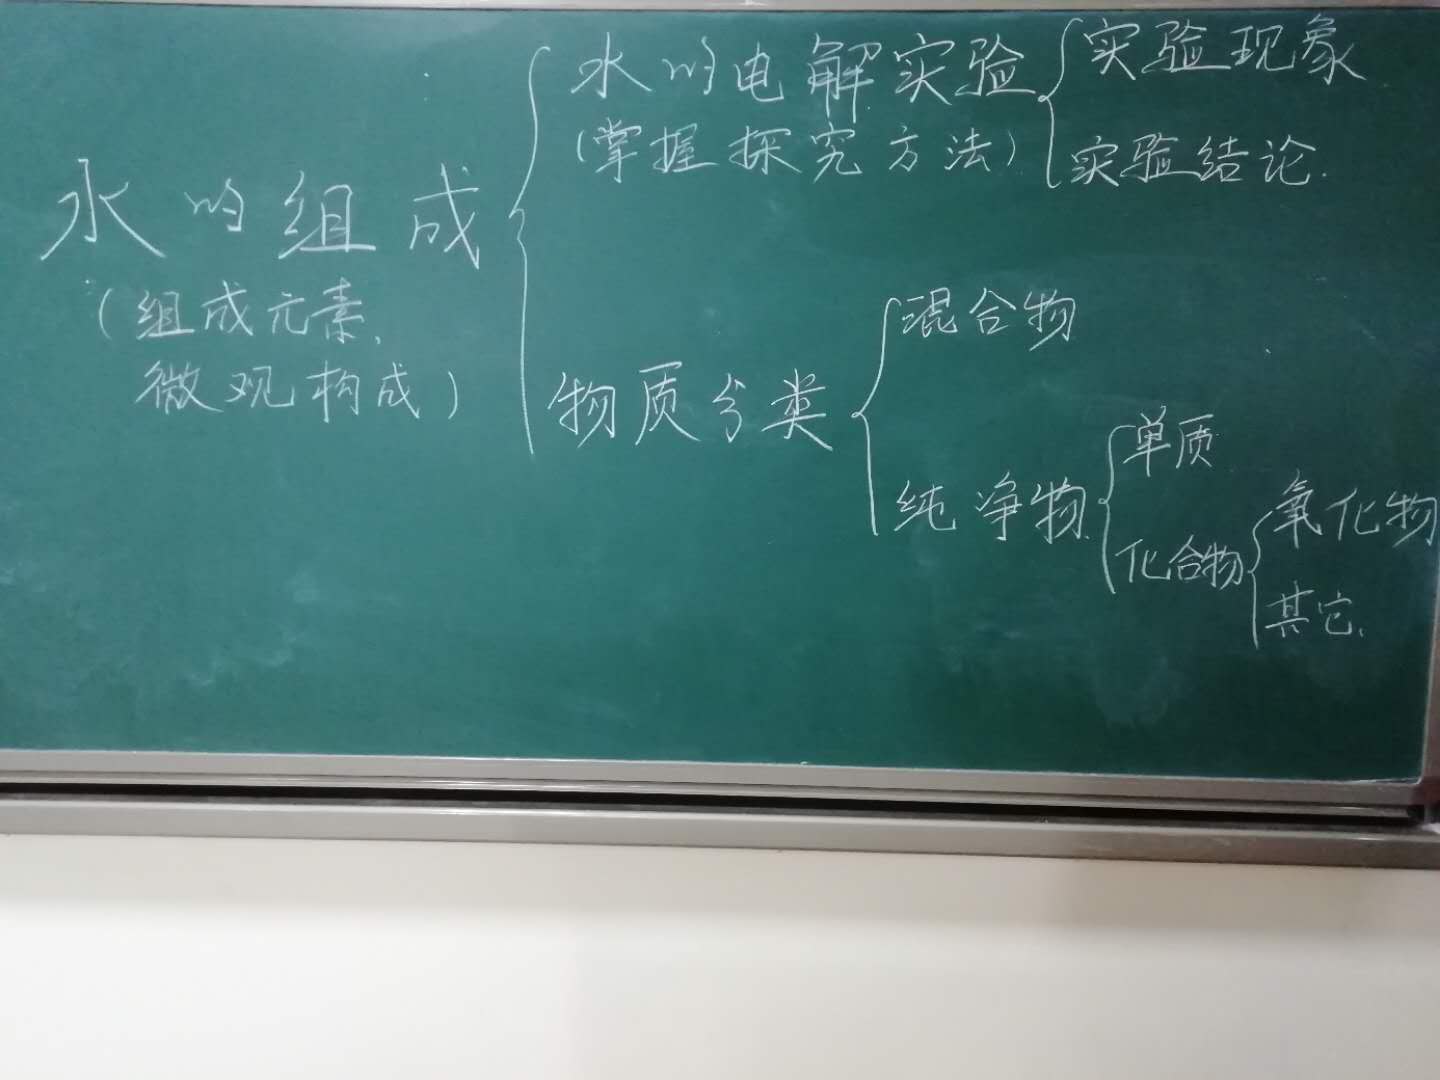 水的组成
(组成元素、
微观构成)
水的电解实验
(掌握探究方法)
实验现象
实验结论.
物质分类
混合物
纯净物
单质
化合物
氧化物
其它.